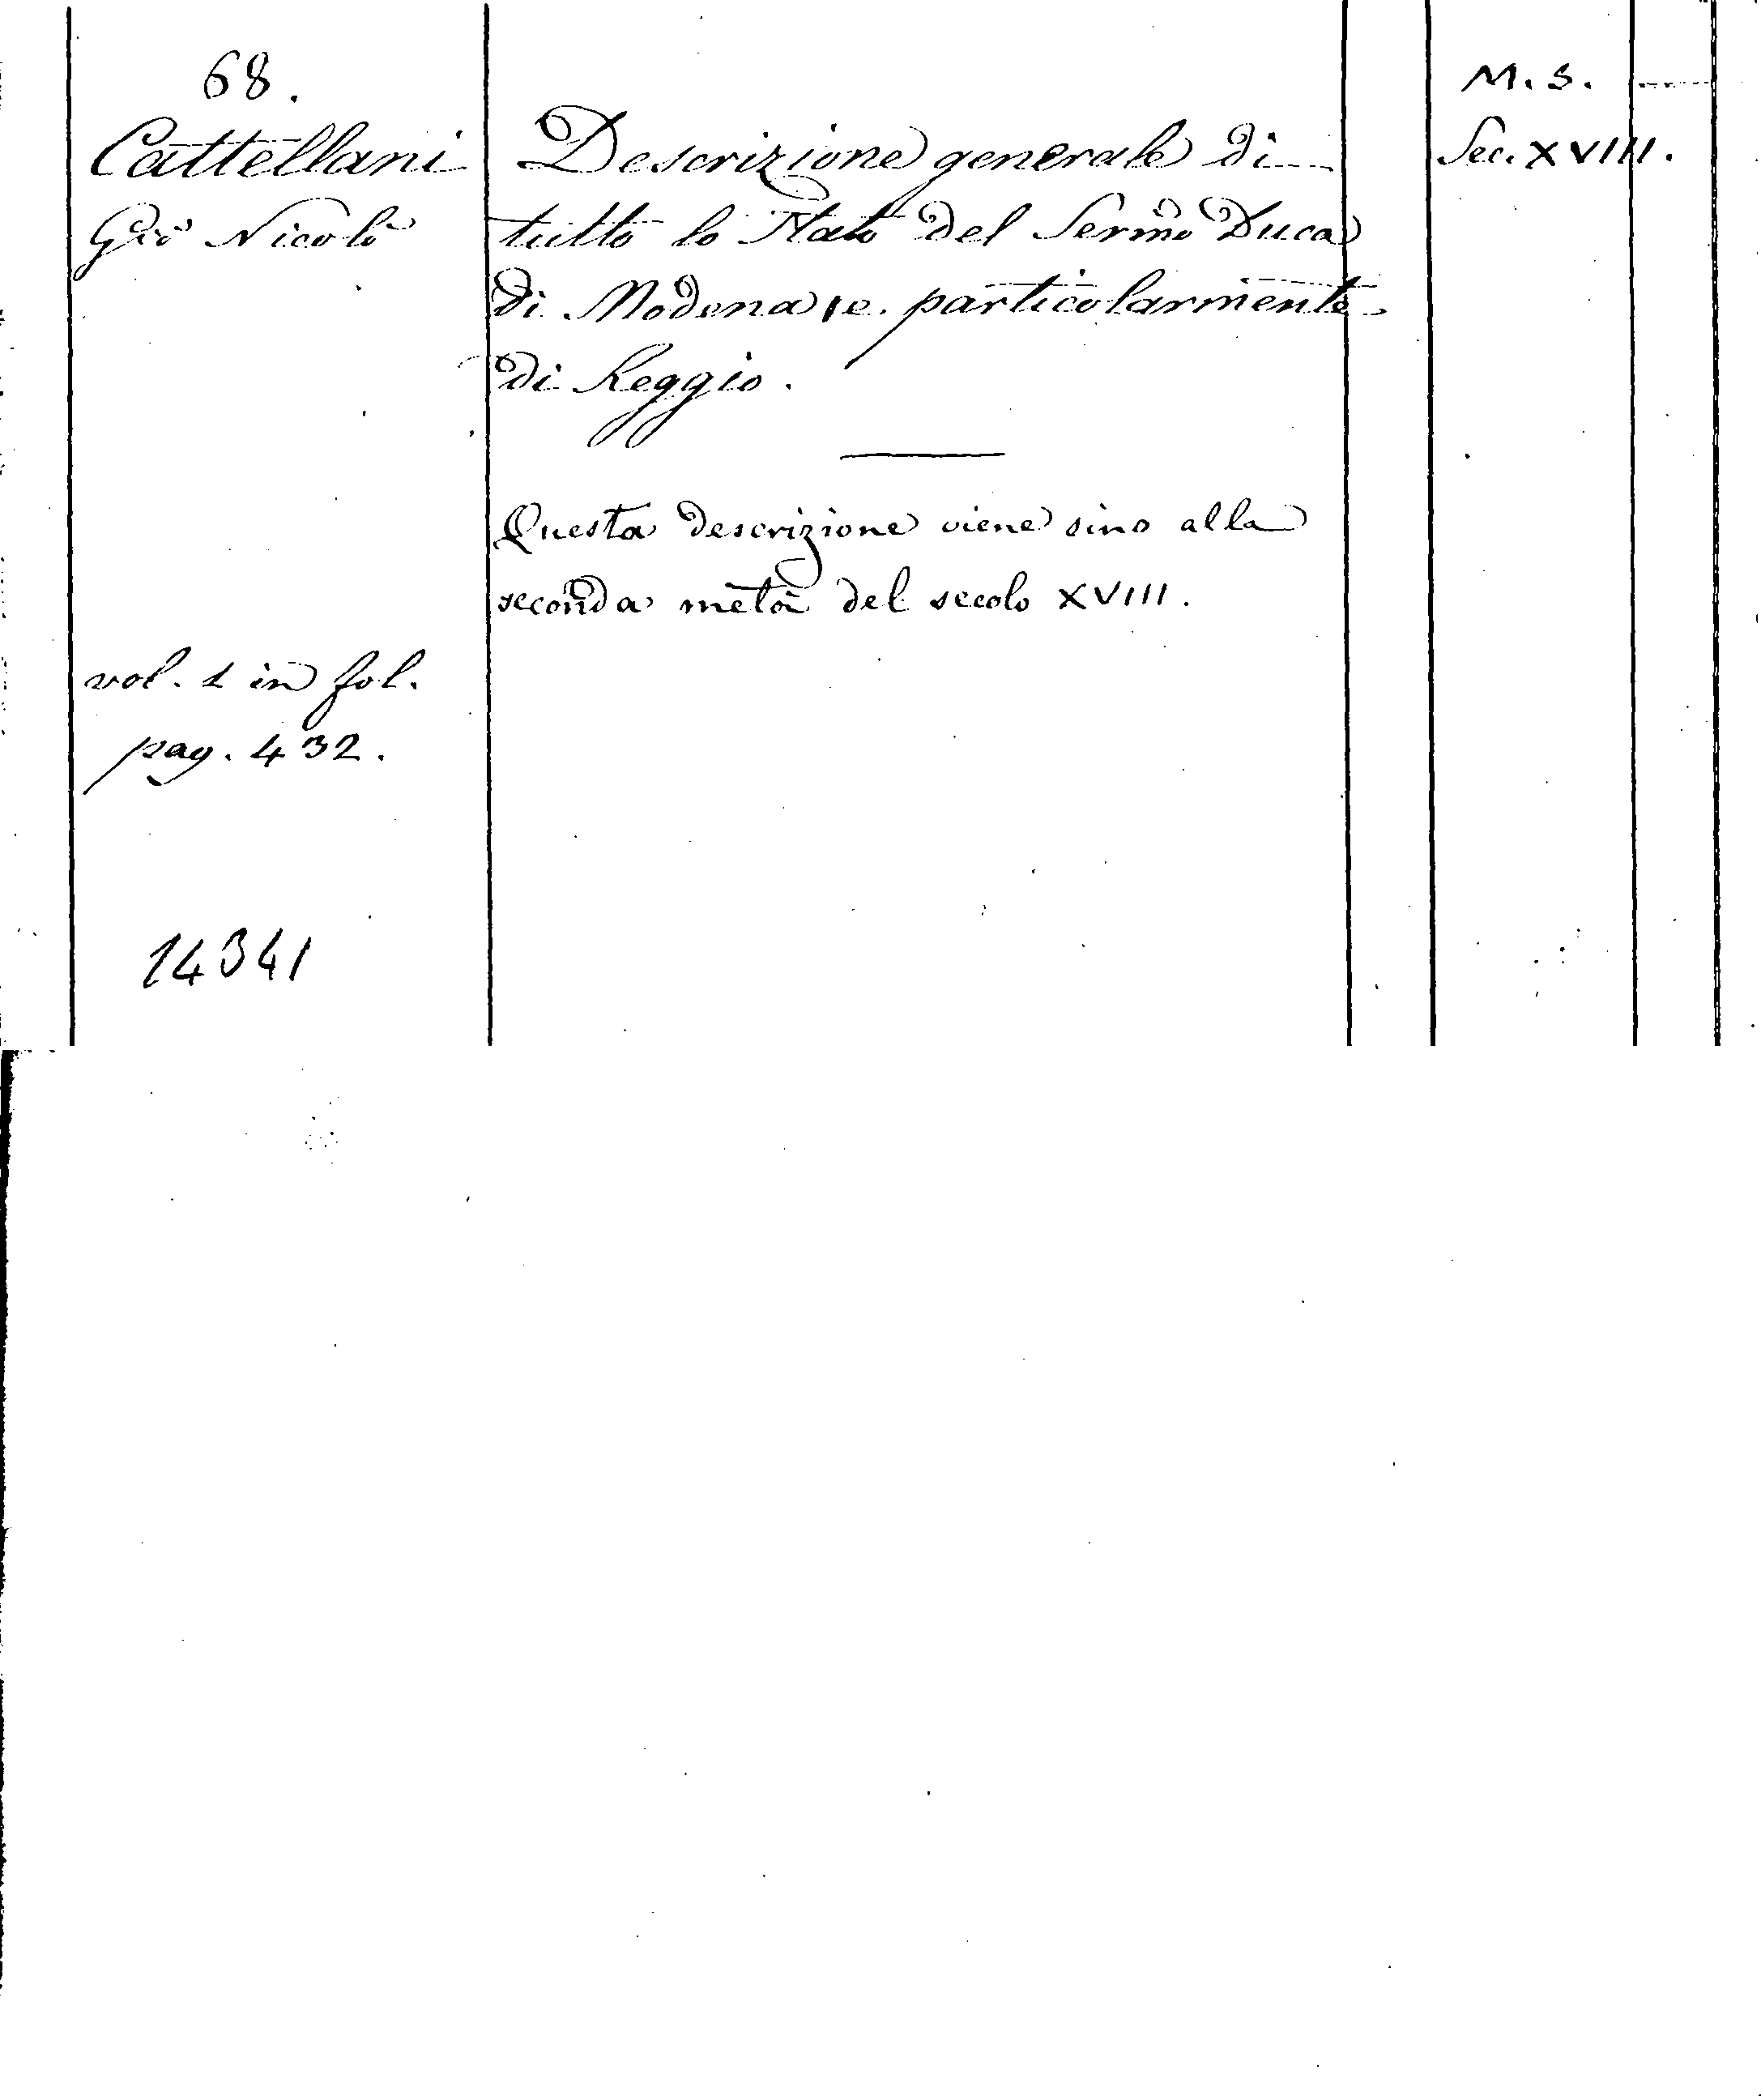 68.
Cattellani
Gio Nicolò
vol. 1 in fol.
pag. 432.
14341
Descrizione generale di
tutto lo Stato del Sermo Duca
di Modena, e particolarmente
di Reggio.
Questa descrizione viene sino alla
seconda metà del secolo XVIII.
M. S.
Sec. XVIII.